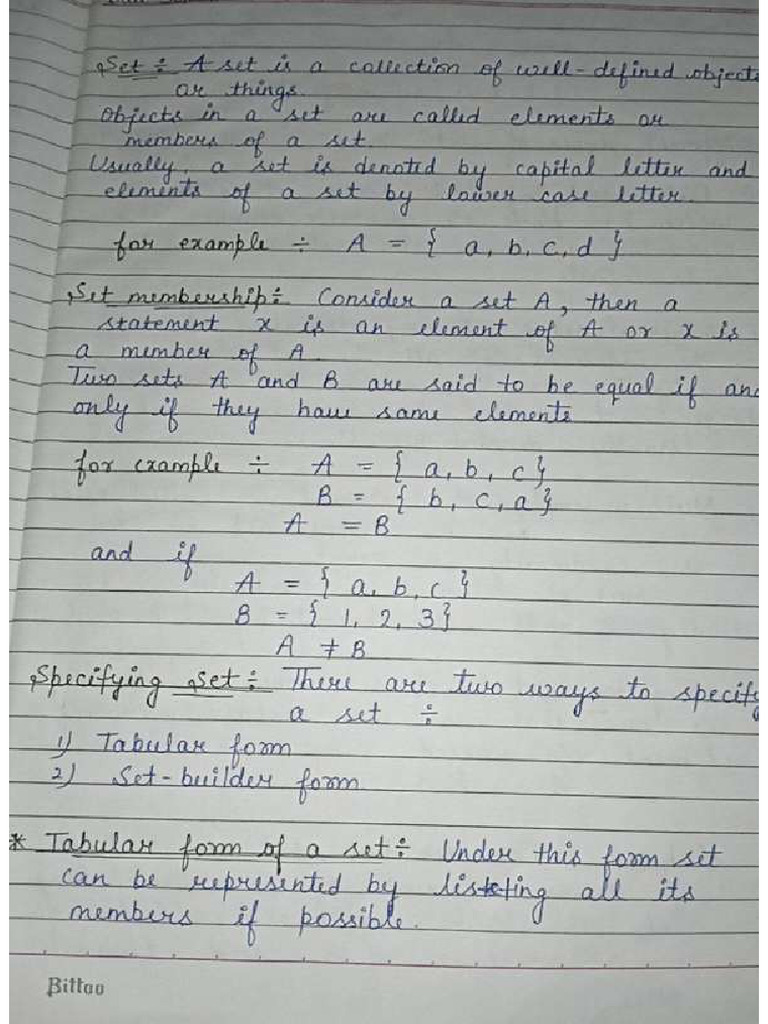 Set ÷ A set is a collection of well-defined objects
or things.
Objects in a set are called elements or
members of a set.
Usually, a set is denoted by capital letter and
elements of a set by lower case letter.
for example ÷ A = { a, b, c, d }
Set membership ÷ Consider a set A, then a
statement x is an element of A or x is
a member of A.
Two sets A and B are said to be equal if and
only if they have same elements
for example ÷ A = { a, b, c }
B = { b, c, a }
A = B
and if
A = { a, b, c }
B = { 1, 2, 3 }
A ≠ B
Specifying set ÷ There are two ways to specify
a set ÷
1) Tabular form
2) Set-builder form
* Tabular form of a set ÷ Under this form set
can be represented by listing all its
members if possible.
Bittoo